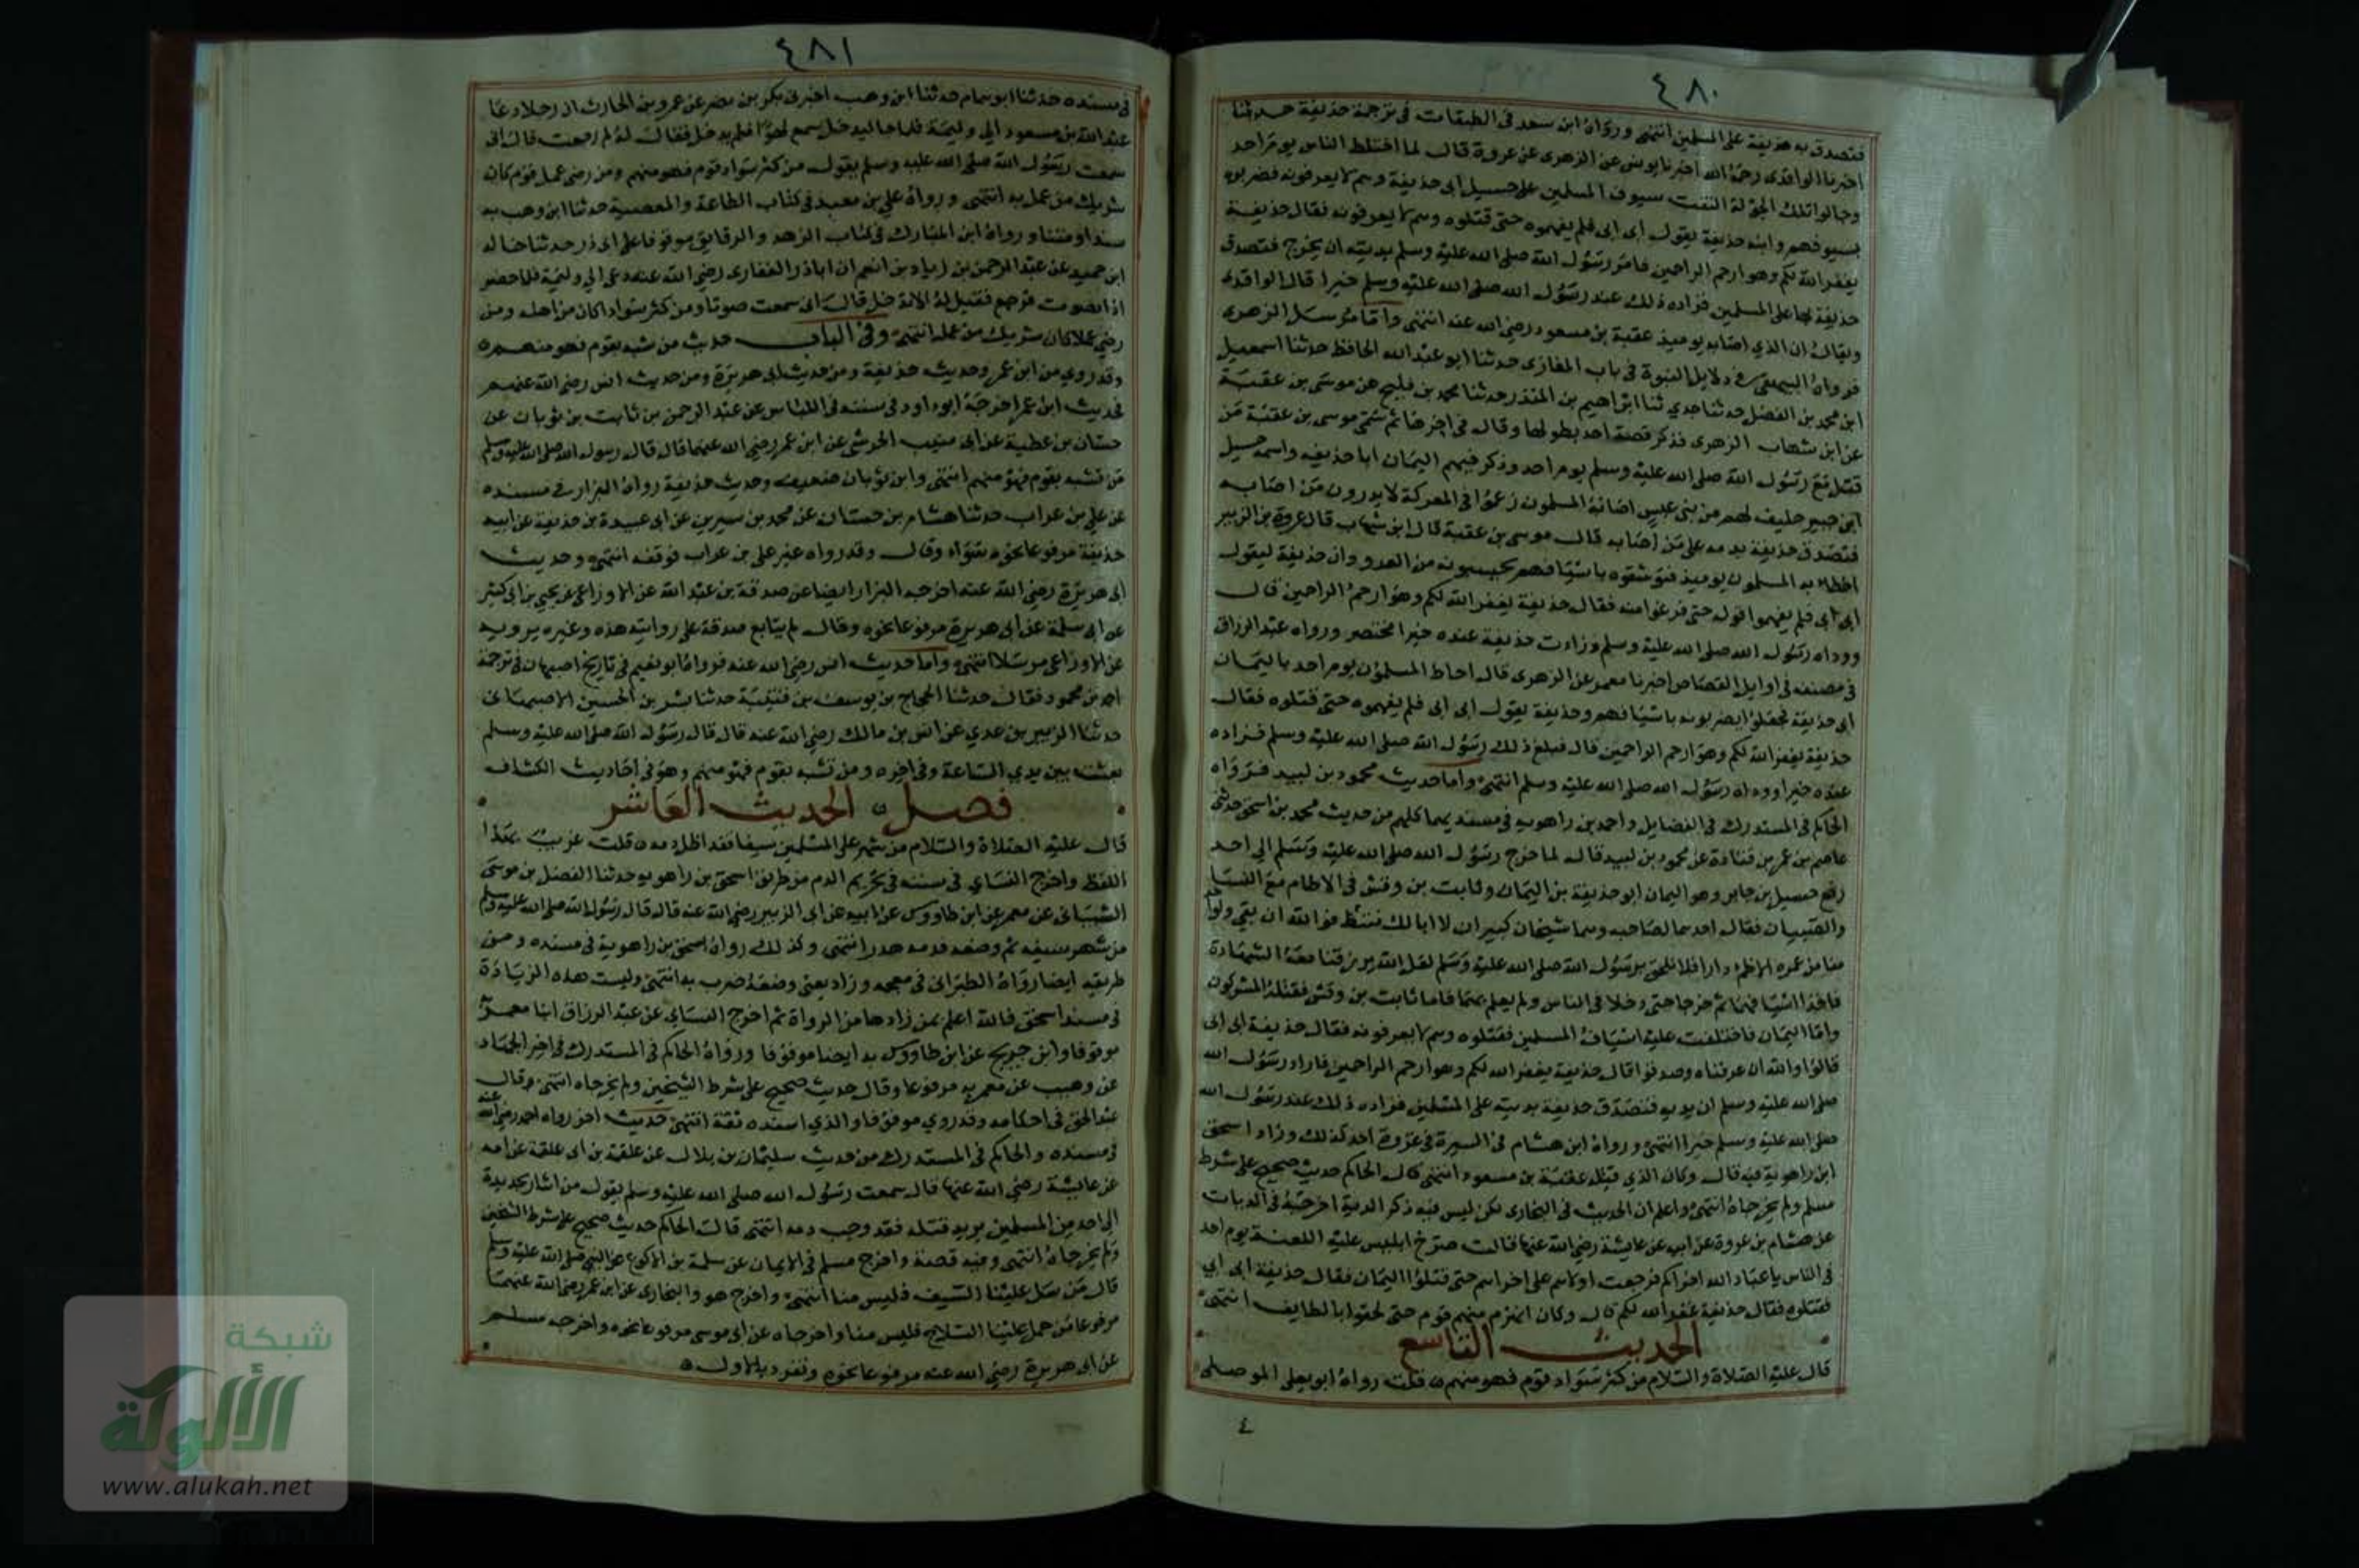 ٤٨٠
فتصدق به حذيفة على المسلمين انتهى ورواه ابن سعد في الطبقات في ترجمة حذيفة حدثنا
اخبرنا الواقدي رحمه الله اخبرنا يونس عن الزهري عن عروة قال لما اختلط الناس يوم احد
وجالوا تلك الجولة التفت سيوف المسلمين على حسيل ابي حذيفة وهم لا يعرفونه فضربوه
بسيوفهم وابنه حذيفة يقول ابي ابي فلم يفهموه حتى قتلوه وهم لا يعرفونه فقال حذيفة
يغفر الله لكم وهو ارحم الراحمين فامر رسول الله صلى الله عليه وسلم بديته ان يخرج فتصدق
حذيفة بها على المسلمين فزاده ذلك عند رسول الله صلى الله عليه وسلم خيرا قال الواقدي
ويقال ان الذي اصابه يوميذ عقبة بن مسعود رضي الله عنه انتهى واما مرسل الزهري
فرواه البيهقي في دلايل النبوة في باب المغازي حدثنا ابو عبد الله الحافظ حدثنا اسمعيل
ابن محمد بن الفضل حدثنا جدي ثنا ابراهيم بن المنذر حدثنا محمد بن فليح عن موسى بن عقبة
عن ابن شهاب الزهري فذكر قصة احد بطولها وقال في اخرها ثم سمى موسى بن عقبة من
قتل مع رسول الله صلى الله عليه وسلم يوم احد وذكر فيهم اليمان ابا حذيفة واسمه حسيل
ابن جبير حليف لهم من بني عبس اصابه المسلمون زعموا في المعركة لا يدرون من اصابه
فتصدق حذيفة بدمه على من اصابه قال موسى بن عقبة قال ابن شهاب قال عروة بن الزبير
اخطا به المسلمون يوميذ فتوشقوه باسيافهم يحسبونه من العدو وان حذيفة ليقول
ابي ابي فلم يفهموا قوله حتى فرغوا منه فقال حذيفة يغفر الله لكم وهو ارحم الراحمين قال
ووداه رسول الله صلى الله عليه وسلم وزادت حذيفة عنده خيرا مختصر ورواه عبد الرزاق
في مصنفه في اوايل القصاص اخبرنا معمر عن الزهري قال احاط المسلمون يوم احد باليمان
ابي حذيفة فجعلوا يضربونه باسيافهم وحذيفة يقول ابي ابي فلم يفهموه حتى قتلوه فقال
حذيفة يغفر الله لكم وهو ارحم الراحمين قال فبلغ ذلك رسول الله صلى الله عليه وسلم فزاده
عنده خيرا ووداه رسول الله صلى الله عليه وسلم انتهى واما حديث محمود بن لبيد فرواه
الحاكم في المستدرك في الفضايل واحمد بن راهويه في مسنديهما كلهم من حديث محمد بن اسحق حدثني
عاصم بن عمر بن قتادة عن محمود بن لبيد قال لما خرج رسول الله صلى الله عليه وسلم الى احد
رفع حسيل بن جابر وهو اليمان ابو حذيفة بن اليمان وثابت بن وقش في الاطام مع النسا
والصبيان فقال احدهما لصاحبه وهما شيخان كبيران لا ابا لك ننتظر فوالله ان بقي ولواحد
منا من عمره الا ظمء دار افلا نلحق برسول الله صلى الله عليه وسلم لعل الله يرزقنا معه الشهادة
فاخذا اسيافهما ثم خرجا حتى دخلا في الناس ولم يعلم بهما فاما ثابت بن وقش فقتله المشركون
واما اليمان فاختلفت عليه اسياف المسلمين فقتلوه وهم لا يعرفونه فقال حذيفة ابي ابي
قالوا والله ان عرفناه وصدقوا قال حذيفة يغفر الله لكم وهو ارحم الراحمين فاراد رسول الله
صلى الله عليه وسلم ان يديه فتصدق حذيفة بديته على المسلمين فزاده ذلك عند رسول الله
صلى الله عليه وسلم خيرا انتهى ورواه ابن هشام في السيرة في غزوة احد كذلك وزاد اسحق
ابن راهويه فيه قال وكان الذي قتله عقبة بن مسعود انتهى قال الحاكم حديث صحيح على شرط
مسلم ولم يخرجاه انتهى واعلم ان الحديث في البخاري لكن ليس فيه ذكر الدية اخرجه في الديات
عن هشام بن عروة عن ابيه عن عايشة رضي الله عنها قالت صرخ ابليس عليه اللعنة يوم احد
في الناس يا عباد الله اخراكم فرجعت اولاهم على اخراهم حتى قتلوا اليمان فقال حذيفة ابي ابي
فقتلوه فقال حذيفة غفر الله لكم قال وكان انهزم منهم قوم حتى لحقوا بالطايف انتهى
الحديث التاسع
قال عليه الصلاة والسلام من كثر سواد قوم فهو منهم قلت رواه ابو يعلى الموصلي
٤
٤٨١
في مسنده حدثنا ابو همام حدثنا ابن وهب اخبرني بكر بن مضر عن عمرو بن الحارث ان رجلا دعا
عبد الله بن مسعود الى وليمة فلما جا ليدخل سمع لهوا فلم يدخل فقال له لم رجعت قال اني
سمعت رسول الله صلى الله عليه وسلم يقول من كثر سواد قوم فهو منهم ومن رضي عمل قوم كان
شريك من عمل به انتهى ورواه علي بن معبد في كتاب الطاعة والمعصية حدثنا ابن وهب به
سندا ومتنا ورواه ابن المبارك في كتاب الزهد والرقايق موقوفا على ابي ذر حدثنا خالد
ابن حميد عن عبد الرحمن بن زياد بن انعم ان ابا ذر الغفاري رضي الله عنه دعي الى وليمة فلما حضر
اذا بصوت فرجع فقيل له الا تدخل قال اني سمعت صوتا ومن كثر سوادا كان من اهله ومن
رضي عملا كان شريك من عمله انتهى وفي الباب حديث من تشبه بقوم فهو منهم
وقد روي من ابن عمر وحديث حذيفة ومن حديث ابي هريرة ومن حديث انس رضي الله عنهم
فحديث ابن عمر اخرجه ابو داود في سننه في اللباس عن عبد الرحمن بن ثابت بن ثوبان عن
حسان بن عطية عن ابي منيب الجرشي عن ابن عمر رضي الله عنهما قال قال رسول الله صلى الله عليه وسلم
من تشبه بقوم فهو منهم انتهى وابن ثوبان ضعيف وحديث حذيفة رواه البزار في مسنده
عن علي بن غراب حدثنا هشام بن حسان عن محمد بن سيرين عن ابي عبيدة بن حذيفة عن ابيه
حذيفة مرفوعا نحوه سواء وقال وقد رواه غير علي بن غراب فوقفه انتهى وحديث
ابي هريرة رضي الله عنه اخرجه البزار ايضا عن صدقة بن عبد الله عن الاوزاعي عن يحيى بن ابي كثير
عن ابي سلمة عن ابي هريرة مرفوعا نحوه وقال لم يتابع صدقة على روايته هذه وغيره يرويه
عن الاوزاعي مرسلا انتهى واما حديث انس رضي الله عنه فرواه ابو نعيم في تاريخ اصبهان في ترجمة
احمد بن محمود فقال حدثنا الحجاج بن يوسف بن قتيبة حدثنا بشر بن الحسين الاصبهاني
حدثنا الزبير بن عدي عن انس بن مالك رضي الله عنه قال قال رسول الله صلى الله عليه وسلم
بعثت بين يدي الساعة وفي اخره ومن تشبه بقوم فهو منهم وهو في احاديث الكشاف
فصل الحديث العاشر
قال عليه الصلاة والسلام من شهر على المسلمين سيفا فقد اطل دمه قلت غريب بهذا
اللفظ واخرج النساي في سننه في تحريم الدم من طريق اسحق بن راهويه حدثنا الفضل بن موسى
الشيباني عن معمر عن ابن طاووس عن ابيه عن ابي الزبير رضي الله عنه قال قال رسول الله صلى الله عليه وسلم
من شهر سيفه ثم وضعه فدمه هدر انتهى وكذلك رواه اسحق بن راهوية في مسنده ومن
طريقه ايضا رواه الطبراني في معجمه وزاد يعني وضعه ضرب به انتهى وليست هذه الزيادة
في مسند اسحق فالله اعلم بمن زادها من الرواة ثم اخرج النساي عن عبد الرزاق انبا معمر
موقوفا وابن جريج عن ابن طاووس به ايضا موقوفا ورواه الحاكم في المستدرك في اخر الجهاد
عن وهيب عن معمر به مرفوعا وقال حديث صحيح على شرط الشيخين ولم يخرجاه انتهى وقال
عبد الحق في احكامه وقد روي موقوفا والذي اسنده ثقة انتهى حديث اخر رواه احمد رضي الله عنه
في مسنده والحاكم في المستدرك من حديث سليمان بن بلال عن علقمة بن ابي علقمة عن امه
عن عايشة رضي الله عنها قال سمعت رسول الله صلى الله عليه وسلم يقول من اشار بحديدة
الى احد من المسلمين يريد قتله فقد وجب دمه انتهى قال الحاكم حديث صحيح على شرط الشيخين
ولم يخرجاه انتهى وفيه قصة واخرج مسلم في الايمان عن سلمة بن الاكوع عن النبي صلى الله عليه وسلم
قال من سل علينا السيف فليس منا انتهى واخرج هو والبخاري عن ابن عمر رضي الله عنهما
مرفوعا من حمل علينا السلاح فليس منا واخرجاه عن ابي موسى مرفوعا نحوه واخرجه مسلم
عن ابي هريرة رضي الله عنه مرفوعا نحوه وتفرد بالاول
شبكة
الألوكة
www.alukah.net